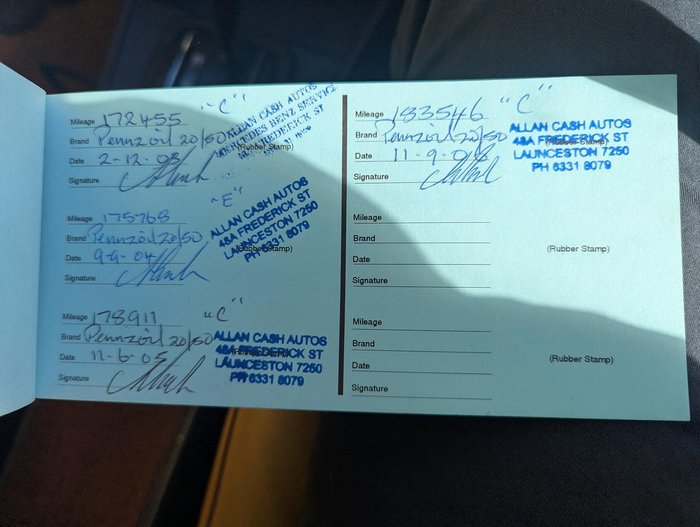 Mileage 172455 "C"
Brand Pennzoil 20/50
Date 2-12-03
Signature
ALLAN CASH AUTOS
MERCEDES BENZ SERVICE
FREDERICK ST
(Rubber Stamp)
Mileage 175768 "E"
Brand Pennzoil 20/50
Date 9-9-04
Signature
ALLAN CASH AUTOS
48A FREDERICK ST
LAUNCESTON 7250
PH 6331 8079
(Rubber Stamp)
Mileage 178911 "C"
Brand Pennzoil 20/50
Date 11-6-05
Signature
ALLAN CASH AUTOS
48A FREDERICK ST
LAUNCESTON 7250
PH 6331 8079
Mileage 183546 "C"
Brand Pennzoil 20/50
Date 11-9-08
Signature
ALLAN CASH AUTOS
48A FREDERICK ST
LAUNCESTON 7250
PH 6331 8079
(Rubber Stamp)
Mileage
Brand
Date
Signature
(Rubber Stamp)
Mileage
Brand
Date
Signature
(Rubber Stamp)